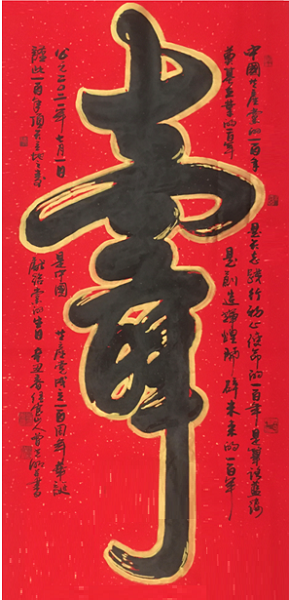 壽
中國共產黨的一百年 是矢志踐行初心使命的一百年 是篳路藍縷
奠基立業的百年 是創造輝煌開辟未來的一百年
公元二〇二一年七月一日 是中國 共產黨成立一百周年華誕
一百年頂天立地之壽 獻給黨的生日 辛丑春 書